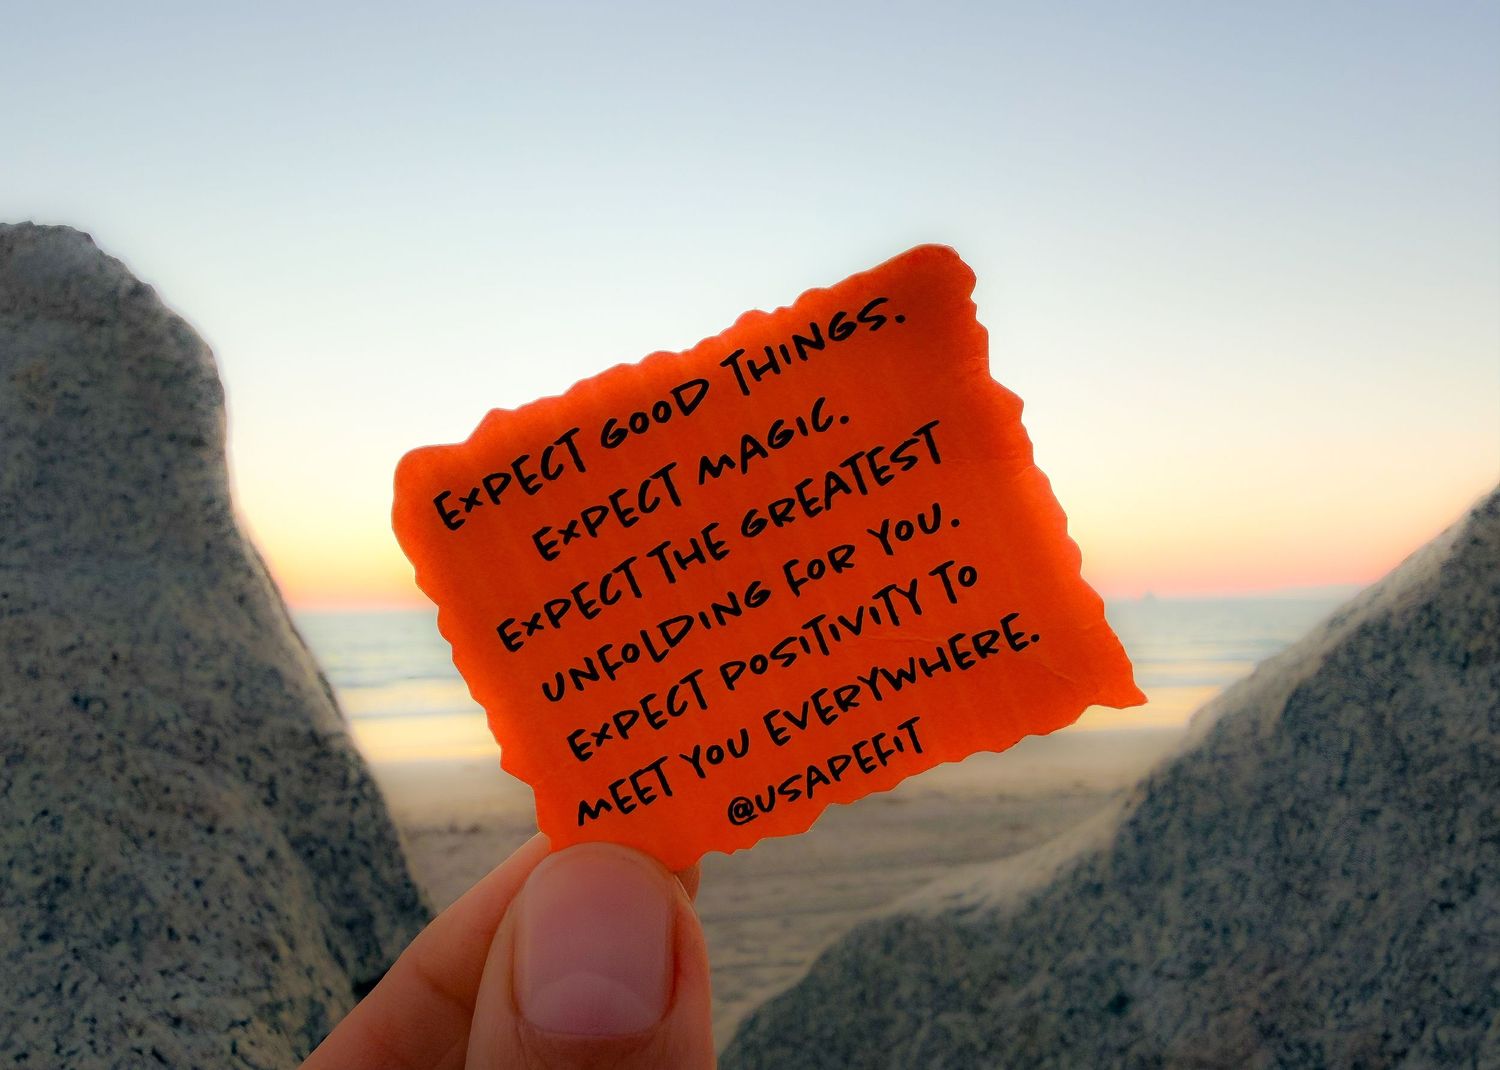 EXPECT GOOD THINGS.
EXPECT MAGIC.
EXPECT THE GREATEST
UNFOLDING FOR YOU.
EXPECT POSITIVITY TO
MEET YOU EVERYWHERE.
@USAPEFIT